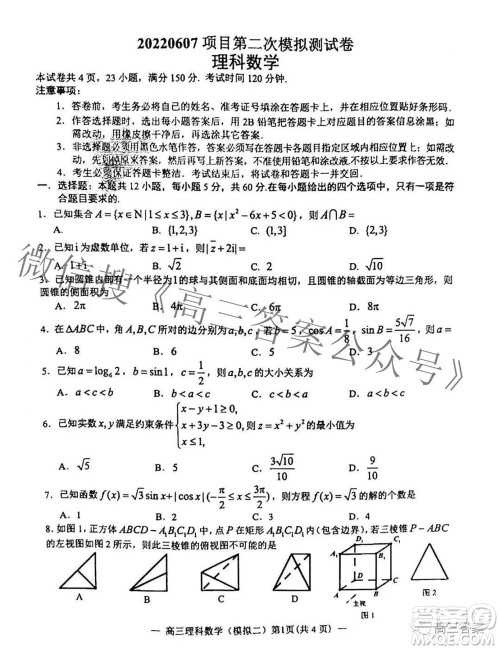 20220607 项目第二次模拟测试卷
理科数学
本试卷共 4 页，23 小题，满分 150 分. 考试时间 120 分钟.
注意事项：
1. 答卷前，考生务必将自己的姓名、准考证号填涂在答题卡上，并在相应位置贴好条形码.
2. 作答选择题时，选出每小题答案后，用 2B 铅笔把答题卡上对应题目的答案信息涂黑；如
需改动，用橡皮擦干净后，再选涂其它答案.
3. 非选择题必须用黑色水笔作答，答案必须写在答题卡各题目指定区域内相应位置上，如
需改动，先划掉原来答案，然后再写上新答案，不准使用铅笔和涂改液.
4. 考生必须保证答题卡整洁. 考试结束后，将试卷和答题卡一并交回.
一. 选择题：本题共 12 小题，每小题 5 分，共 60 分. 在每小题给出的四个选项中，只有一项是符
合题目要求的.
1. 已知集合 A={x∈N|1≤x≤3}, B={x|x²−6x+5<0}，则 A∩B=
A. ∅ B. {1,2,3} C. (1,3] D. {2,3}
2. 已知 i 为虚数单位，若 z=1+i，则 |z̅+2i|=
A. 1+i B. √2 C. 2 D. √10
3. 已知圆锥内有一个半径为 1 的球与其侧面和底面均相切，且圆锥的轴截面为等边三角形，则
圆锥的侧面积为
A. 2π B. 4π C. 6π D. 8π
4. 在△ABC 中，角 A,B,C 的对边分别为 a,b,c，若 b=5，cosA=1/8，sinB=5√7/16，则 a=
A. 8 B. 6 C. 5 D. 3
5. 已知 a=log₆2，b=sin1，c=1/2，则 a,b,c 的大小关系为
A. a<c<b B. a<b<c C. c<b<a D. c<a<b
6. 已知实数 x,y 满足约束条件 { x−y−1≤0 x+3y−3≥0 y≤1 ，则 z=x²+y² 的最小值为
A. √5 B. 1 C. 3√10/10 D. 9/10
7. 已知函数 f(x)=√3sinx+|cosx|(−π/2≤x≤3π/2)，则 f(x) 的最大值为
A. √3 B. 2 C. √2 D. 1
8. 如图 1，正方体 ABCD−A₁B₁C₁D₁ 中，点 P 在矩形 内（包含边界），若三棱锥
的左视图如图 2 所示，则此三棱锥的俯视图不可能是
A. B. C. D.
D₁ C₁
A₁ B₁
D C
A B
主视
图 1
图 2
— 高三理科数学（模拟二）第1页(共 4 页) —
微信搜《高三答案公众号》
高三答案